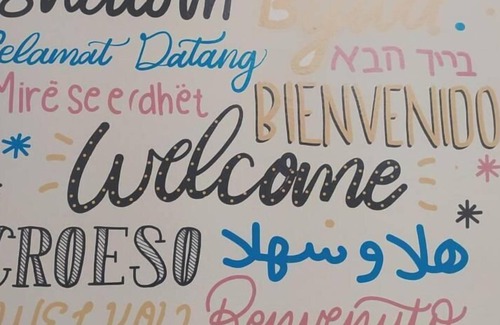 Selamat Datang
הבא
Mirë se erdhët
BIENVENIDO
Welcome
CROESO
هلا و سهلا
Benvenuto